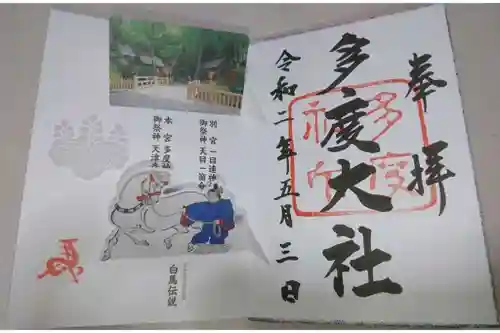 奉拝
多度大社
令和二年五月三日
別宮 一目連神
御祭神 天目一箇命
本宮 多度神
御祭神 天津
白馬伝説
馬